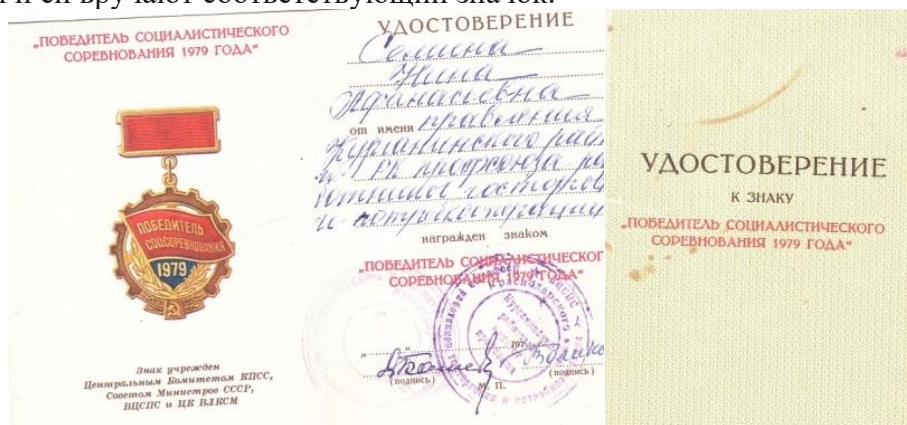 и ей вручают соответствующий значок.
„ПОБЕДИТЕЛЬ СОЦИАЛИСТИЧЕСКОГО
СОРЕВНОВАНИЯ 1979 ГОДА“
ПОБЕДИТЕЛЬ
СОЦСОРЕВНОВАНИЯ
1979
Знак учрежден
Центральным Комитетом КПСС,
Советом Министров СССР,
ВЦСПС и ЦК ВЛКСМ
УДОСТОВЕРЕНИЕ
Семина
Нина
Афанасьевна
от имени правления
Курганинского рай
РК профсоюза ра
ботников госторгов
и потребкооперации
награжден знаком
„ПОБЕДИТЕЛЬ СОЦИАЛИСТИЧЕСКОГ
СОРЕВНОВАНИЯ 1979 ГОДА“
197
(подпись) М. П. (подпись)
УДОСТОВЕРЕНИЕ
К ЗНАКУ
„ПОБЕДИТЕЛЬ СОЦИАЛИСТИЧЕСКОГО
СОРЕВНОВАНИЯ 1979 ГОДА“